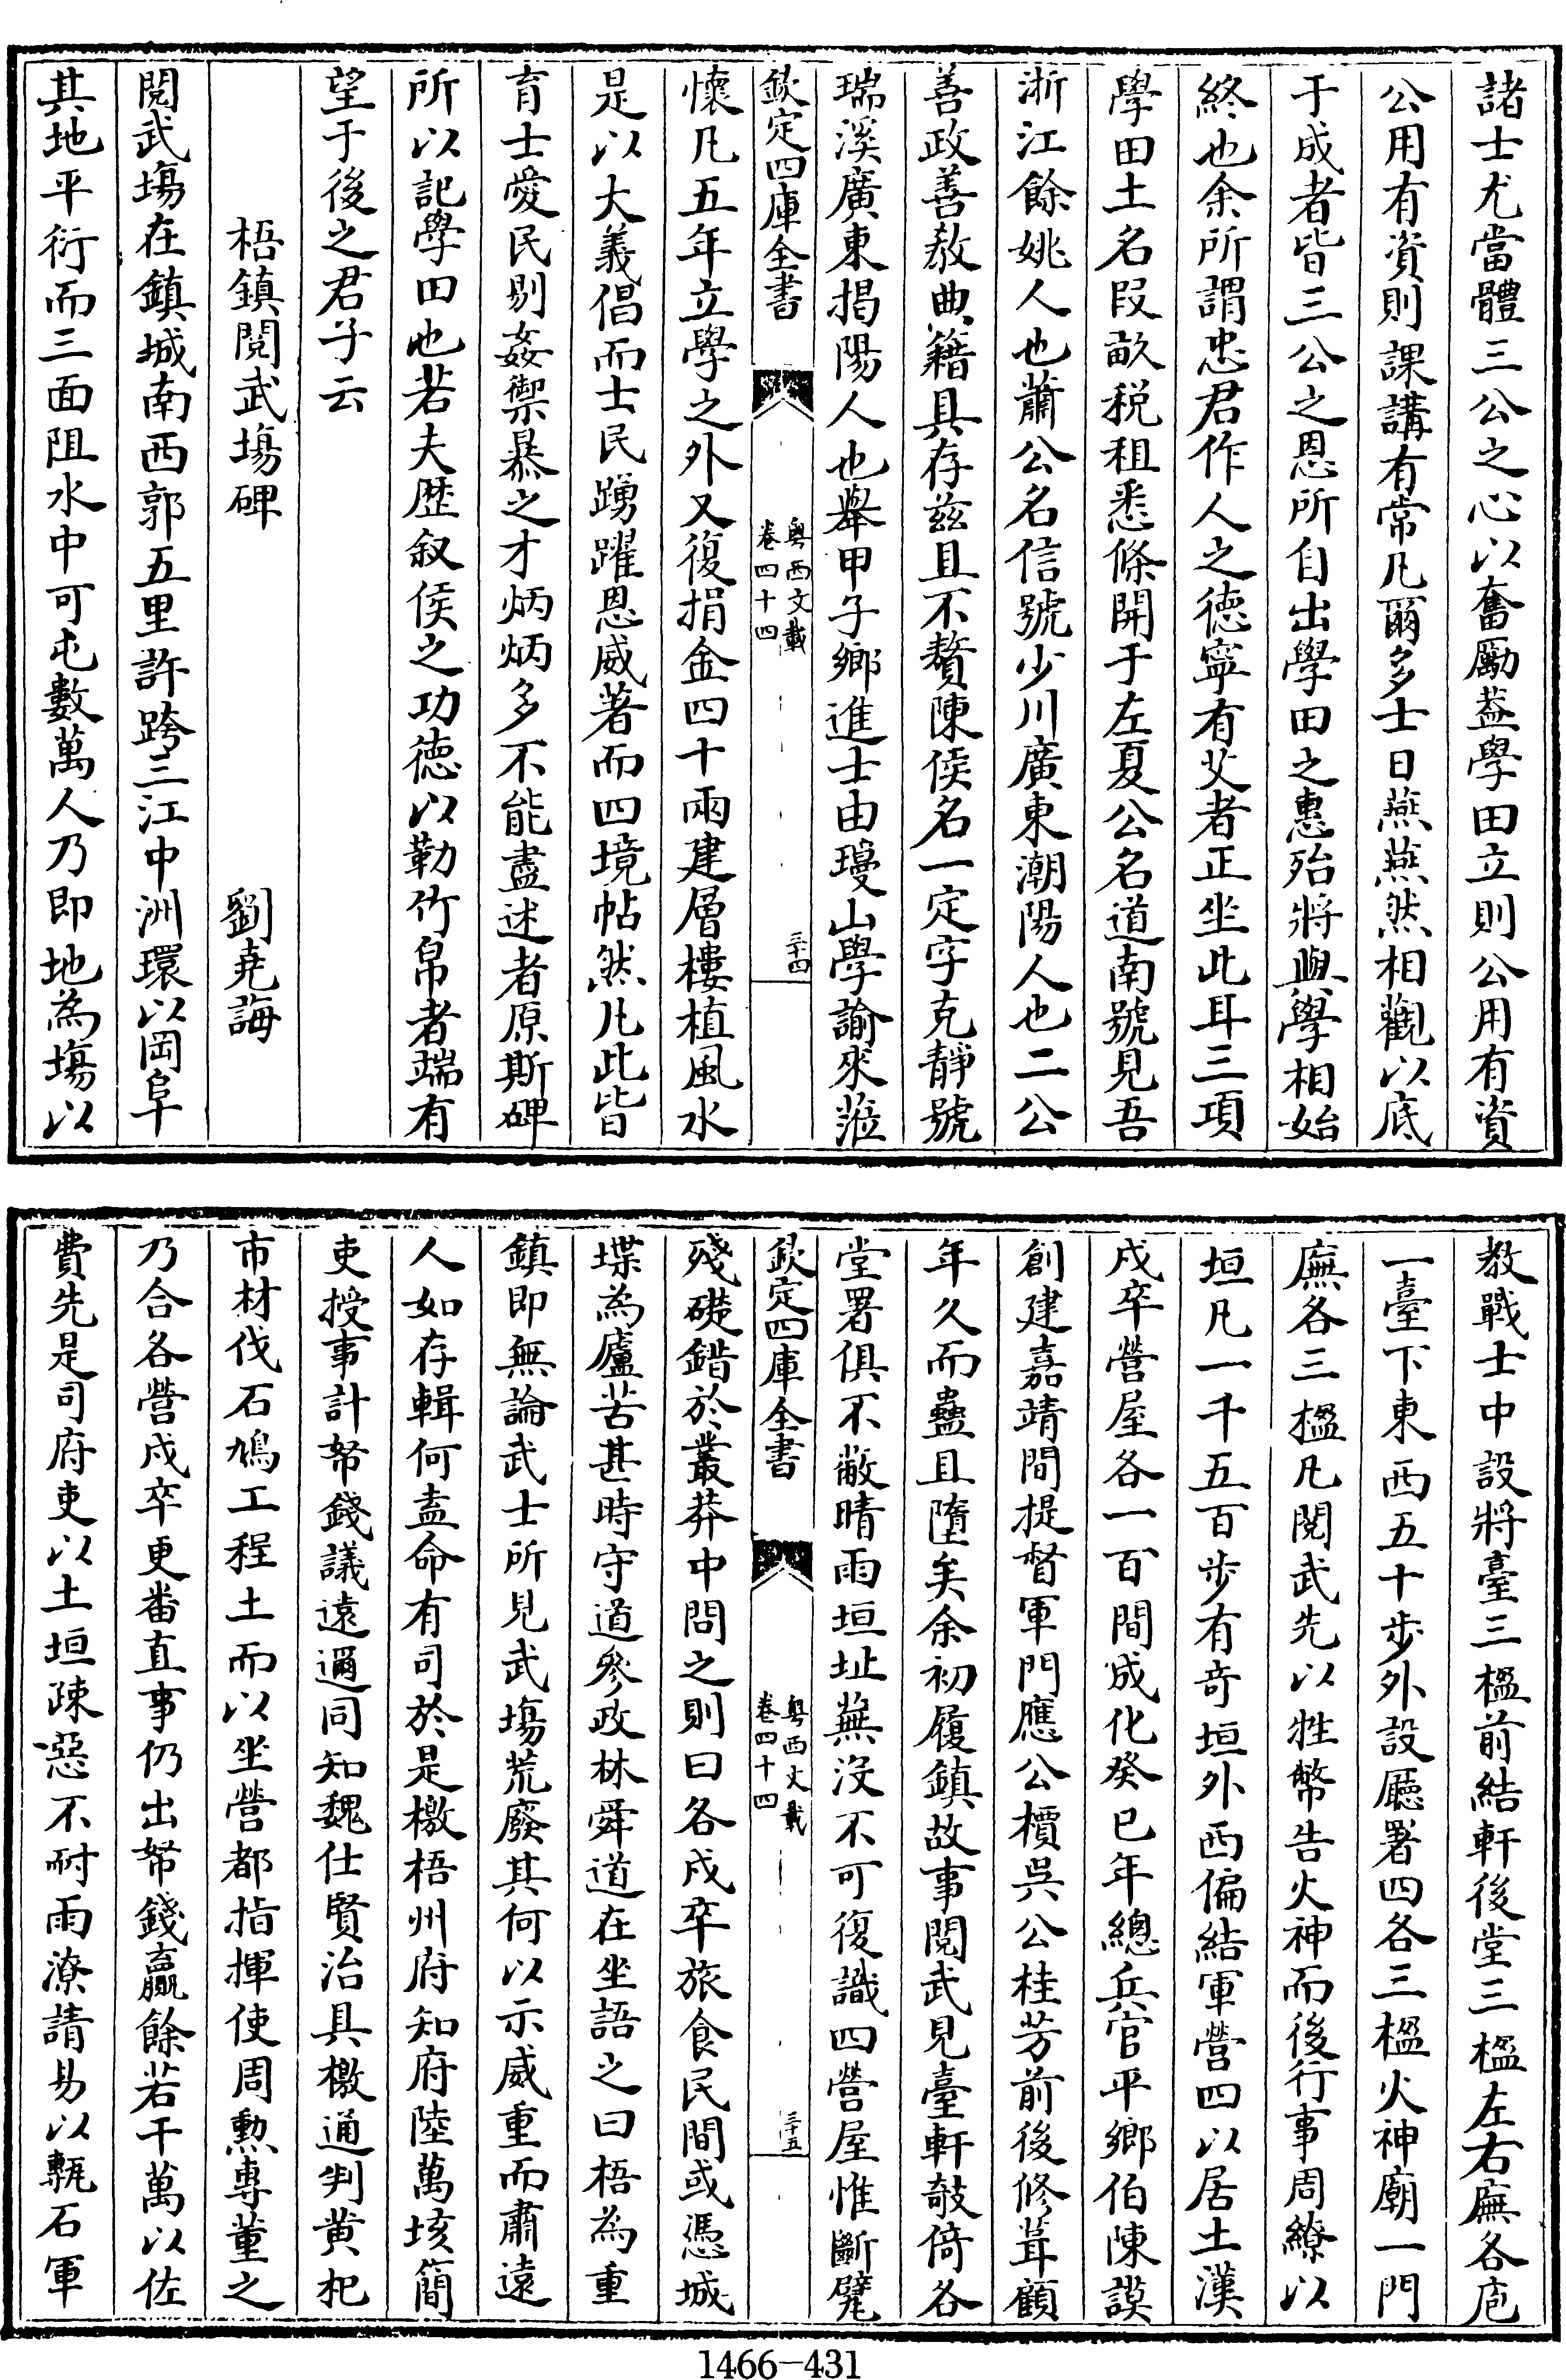 諸士尤當體三公之心以奮勵葢學田立則公用有資
公用有資則課講有常凡爾多士日燕燕然相觀以底
于成者皆三公之恩所自出學田之惠殆將與學相始
終也余所謂忠君作人之徳寧有艾者正坐此耳三項
學田土名段畝税租悉條開于左夏公名道南號見吾
浙江餘姚人也蕭公名信號少川廣東潮陽人也二公
善政善教典籍具存兹且不贅陳侯名一定字克靜號
瑞溪廣東揭陽人也舉甲子鄉進士由瓊山學諭來蒞
欽定四庫全書
粤西文載
卷四十四
三十四
懷凡五年立學之外又復捐金四十兩建層樓植風水
是以大義倡而士民踴躍恩威著而四境帖然凡此皆
育士愛民剔姦禦暴之才炳炳多不能盡述者原斯碑
所以記學田也若夫歴叙侯之功徳以勒竹帛者端有
望于後之君子云
梧鎮閱武塲碑
劉堯誨
閱武塲在鎮城南西郭五里許跨三江中洲環以岡阜
其地平衍而三面阻水中可屯數萬人乃即地為塲以
教戰士中設將臺三楹前結軒後堂三楹左右廡各庖
一臺下東西五十步外設廳署四各三楹火神廟一門
廡各三楹凡閱武先以牲幣告火神而後行事周繚以
垣凡一千五百步有奇垣外西偏結軍營四以居土漢
戍卒營屋各一百間成化癸巳年總兵官平鄉伯陳謨
創建嘉靖間提督軍門應公檟吳公桂芳前後修葺顧
年久而蠱且墮矣余初履鎮故事閱武見臺軒攲倚各
堂署俱不敝晴雨垣址蕪没不可復識四營屋惟斷甓
欽定四庫全書
粤西文載
卷四十四
三十五
殘礎錯於叢莽中問之則曰各戍卒旅食民間或憑城
堞為廬苦甚時守道參政林舜道在坐語之曰梧為重
鎮即無論武士所見武塲荒廢其何以示威重而肅遠
人如存輯何盍命有司於是檄梧州府知府陸萬垓簡
吏授事計帑錢議遠邇同知魏仕賢治具檄通判黄杞
市材伐石鳩工程土而以坐營都指揮使周勲專董之
乃合各營戍卒更番直事仍出帑錢贏餘若干萬以佐
費先是司府吏以土垣疎惡不耐雨潦請易以甎石軍
1466-431